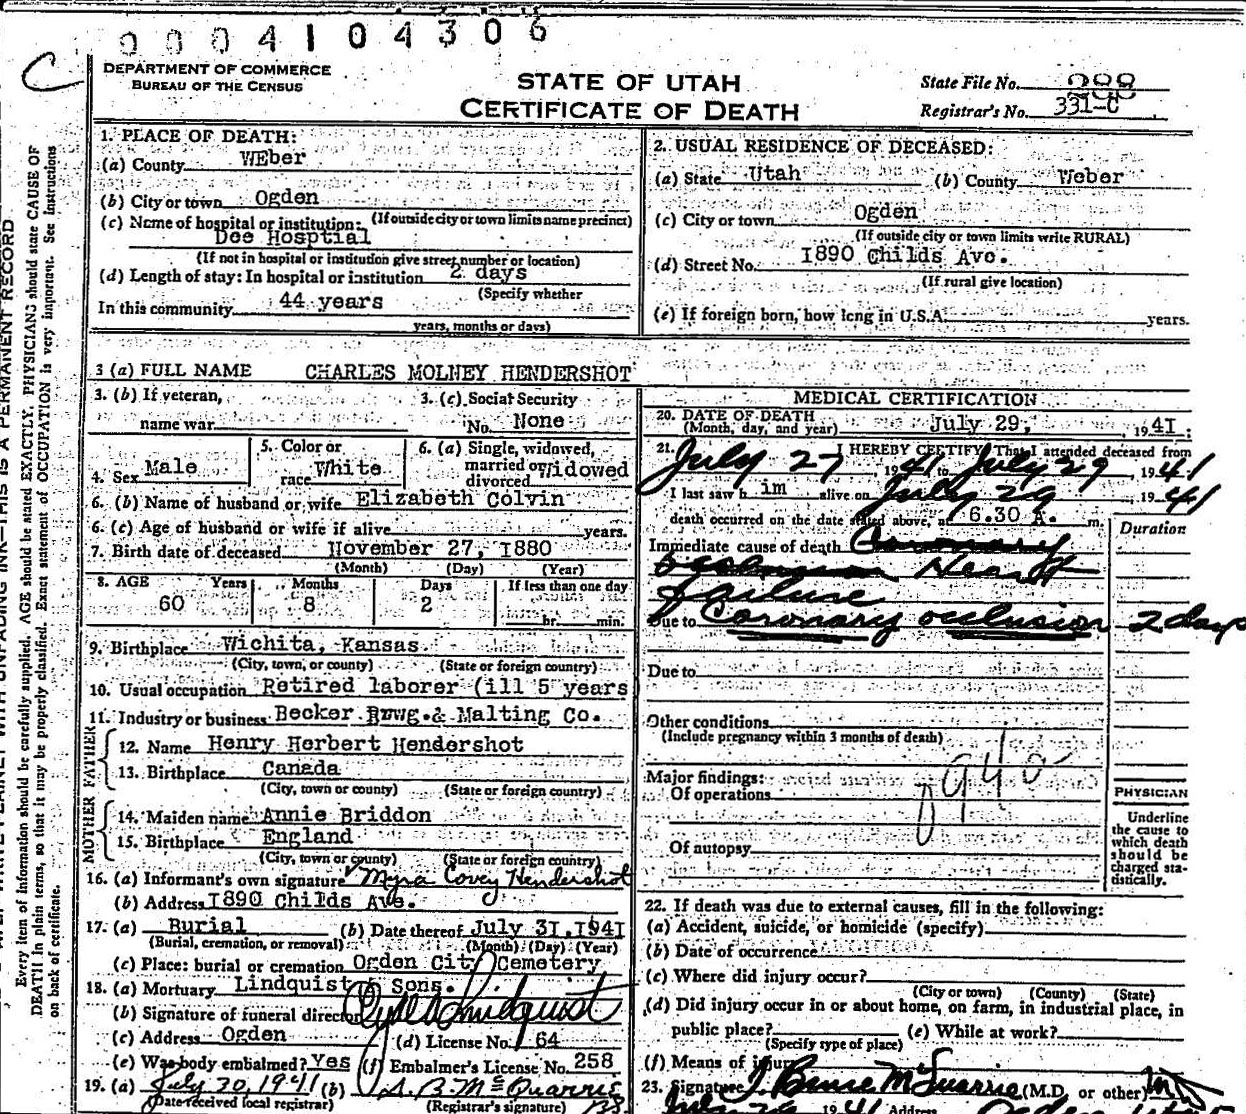 0004104306
C
DEPARTMENT OF COMMERCE
BUREAU OF THE CENSUS
STATE OF UTAH
CERTIFICATE OF DEATH
State File No. 288
Registrar's No. 331-C
Every item of information should be carefully supplied. AGE should be stated EXACTLY. PHYSICIANS should state CAUSE OF
DEATH in plain terms, so that it may be properly classified. Exact statement of OCCUPATION is very important. See instructions
on back of certificate.
1. PLACE OF DEATH:
(a) County WEber
(b) City or town Ogden
(If outside city or town limits name precinct)
(c) Name of hospital or institution:
Dee Hosptial
(If not in hospital or institution give street number or location)
(d) Length of stay: In hospital or institution 2 days
(Specify whether
In this community 44 years
years, months or days)
2. USUAL RESIDENCE OF DECEASED:
(a) State Utah (b) County Weber
(c) City or town Ogden
(If outside city or town limits write RURAL)
(d) Street No. 1890 Childs Ave.
(If rural give location)
(e) If foreign born, how long in U.S.A. years.
3 (a) FULL NAME CHARLES MOLNEY HENDERSHOT
3. (b) If veteran,
name war
3. (c) Social Security
No. None
4. Sex Male
5. Color or
race White
6. (a) Single, widowed,
married or
divorced Widowed
6. (b) Name of husband or wife Elizabeth Colvin
6. (c) Age of husband or wife if alive years.
7. Birth date of deceased November 27, 1880
(Month) (Day) (Year)
8. AGE Years Months Days If less than one day
60 8 2 hr. min.
9. Birthplace Wichita, Kansas
(City, town, or county) (State or foreign country)
10. Usual occupation Retired laborer (ill 5 years
11. Industry or business Becker Brwg. & Malting Co.
FATHER
12. Name Henry Herbert Hendershot
13. Birthplace Canada
(City, town or county) (State or foreign country)
MOTHER
14. Maiden name Annie Briddon
15. Birthplace England
(City, town or county) (State or foreign country)
16. (a) Informant's own signature Myra Covey Hendershot
(b) Address 1890 Childs Ave.
17. (a) Burial (b) Date thereof July 31, 1941
(Burial, cremation, or removal) (Month) (Day) (Year)
(c) Place: burial or cremation Ogden City Cemetery
18. (a) Mortuary Lindquist & Sons.
(b) Signature of funeral director Clyde Lindquist
(c) Address Ogden (d) License No. 64
(e) Was body embalmed? Yes (f) Embalmer's License No. 258
19. (a) July 30, 1941 (b) A. B. McQuarrie
(Date received local registrar) (Registrar's signature)
MEDICAL CERTIFICATION
20. DATE OF DEATH
(Month, day, and year) July 29, 1941.
21. I HEREBY CERTIFY, That I attended deceased from
July 27 1941 to July 29, 1941
I last saw him alive on July 29, 1941
death occurred on the date stated above, at 6.30 A. m.
Duration
Immediate cause of death Coronary
occlusion Heart
failure
Due to Coronary occlusion 2 days
Due to
Other conditions
(Include pregnancy within 3 months of death)
Major findings:
Of operations
Of autopsy
PHYSICIAN
Underline
the cause to
which death
should be
charged sta-
tistically.
22. If death was due to external causes, fill in the following:
(a) Accident, suicide, or homicide (specify)
(b) Date of occurrence
(c) Where did injury occur?
(City or town) (County) (State)
(d) Did injury occur in or about home, on farm, in industrial place, in
public place? (e) While at work?
(Specify type of place)
(f) Means of injury
23. Signature J. Bruce McQuarrie (M.D. or other)
July 29 1941 Address